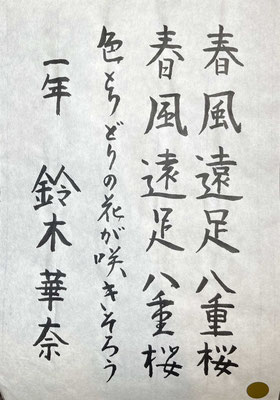 春風遠足八重桜
春風遠足八重桜
色とりどりの花が咲きそろう
一年 鈴木華奈